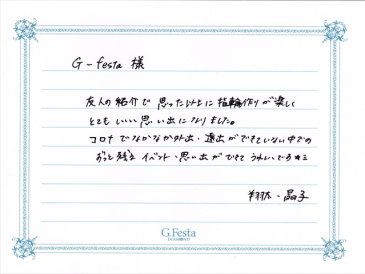 G-festa 様
友人の紹介で思った以上に指輪作りが楽しく
とてもいい思い出になりました。
コロナでなかなか外出・遠出ができていない中での
ずっと残るイベント・思い出ができてうれしいです
翔太・晶子
G.Festa
DIAMOND